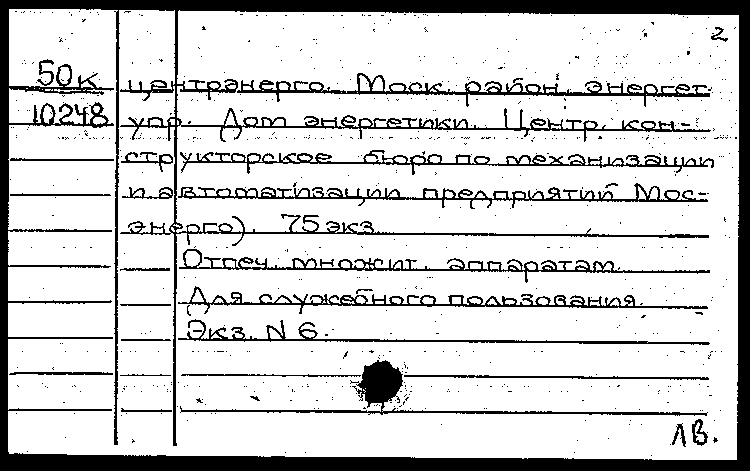 2
50к центрэнерго. Моск. район. энергет.
10248 упр. Дом энергетики. Центр. кон-
структорское бюро по механизации
и автоматизации предприятий Мос-
энерго). 75 экз.
Отпеч. множит. аппаратам.
Для служебного пользования.
Экз. N 6.
ЛВ.